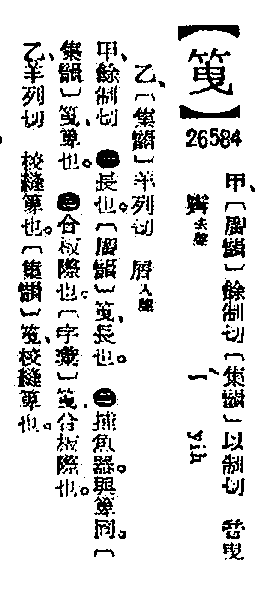 【⿱竹曳】
26584
甲、〔廣韻〕餘制切〔集韻〕以制切 音曳
霽去聲 ㄧˋ yih
乙、〔集韻〕羊列切 屑入聲
甲、餘制切 ㊀長也。〔廣韻〕⿱竹曳、長也。㊁捕魚器。與箄同。〔
集韻〕⿱竹曳、箄也。㊂合板際也。〔字彙〕⿱竹曳、合板際也。
乙、羊列切 校縫箄也。〔集韻〕⿱竹曳、校縫箄也。